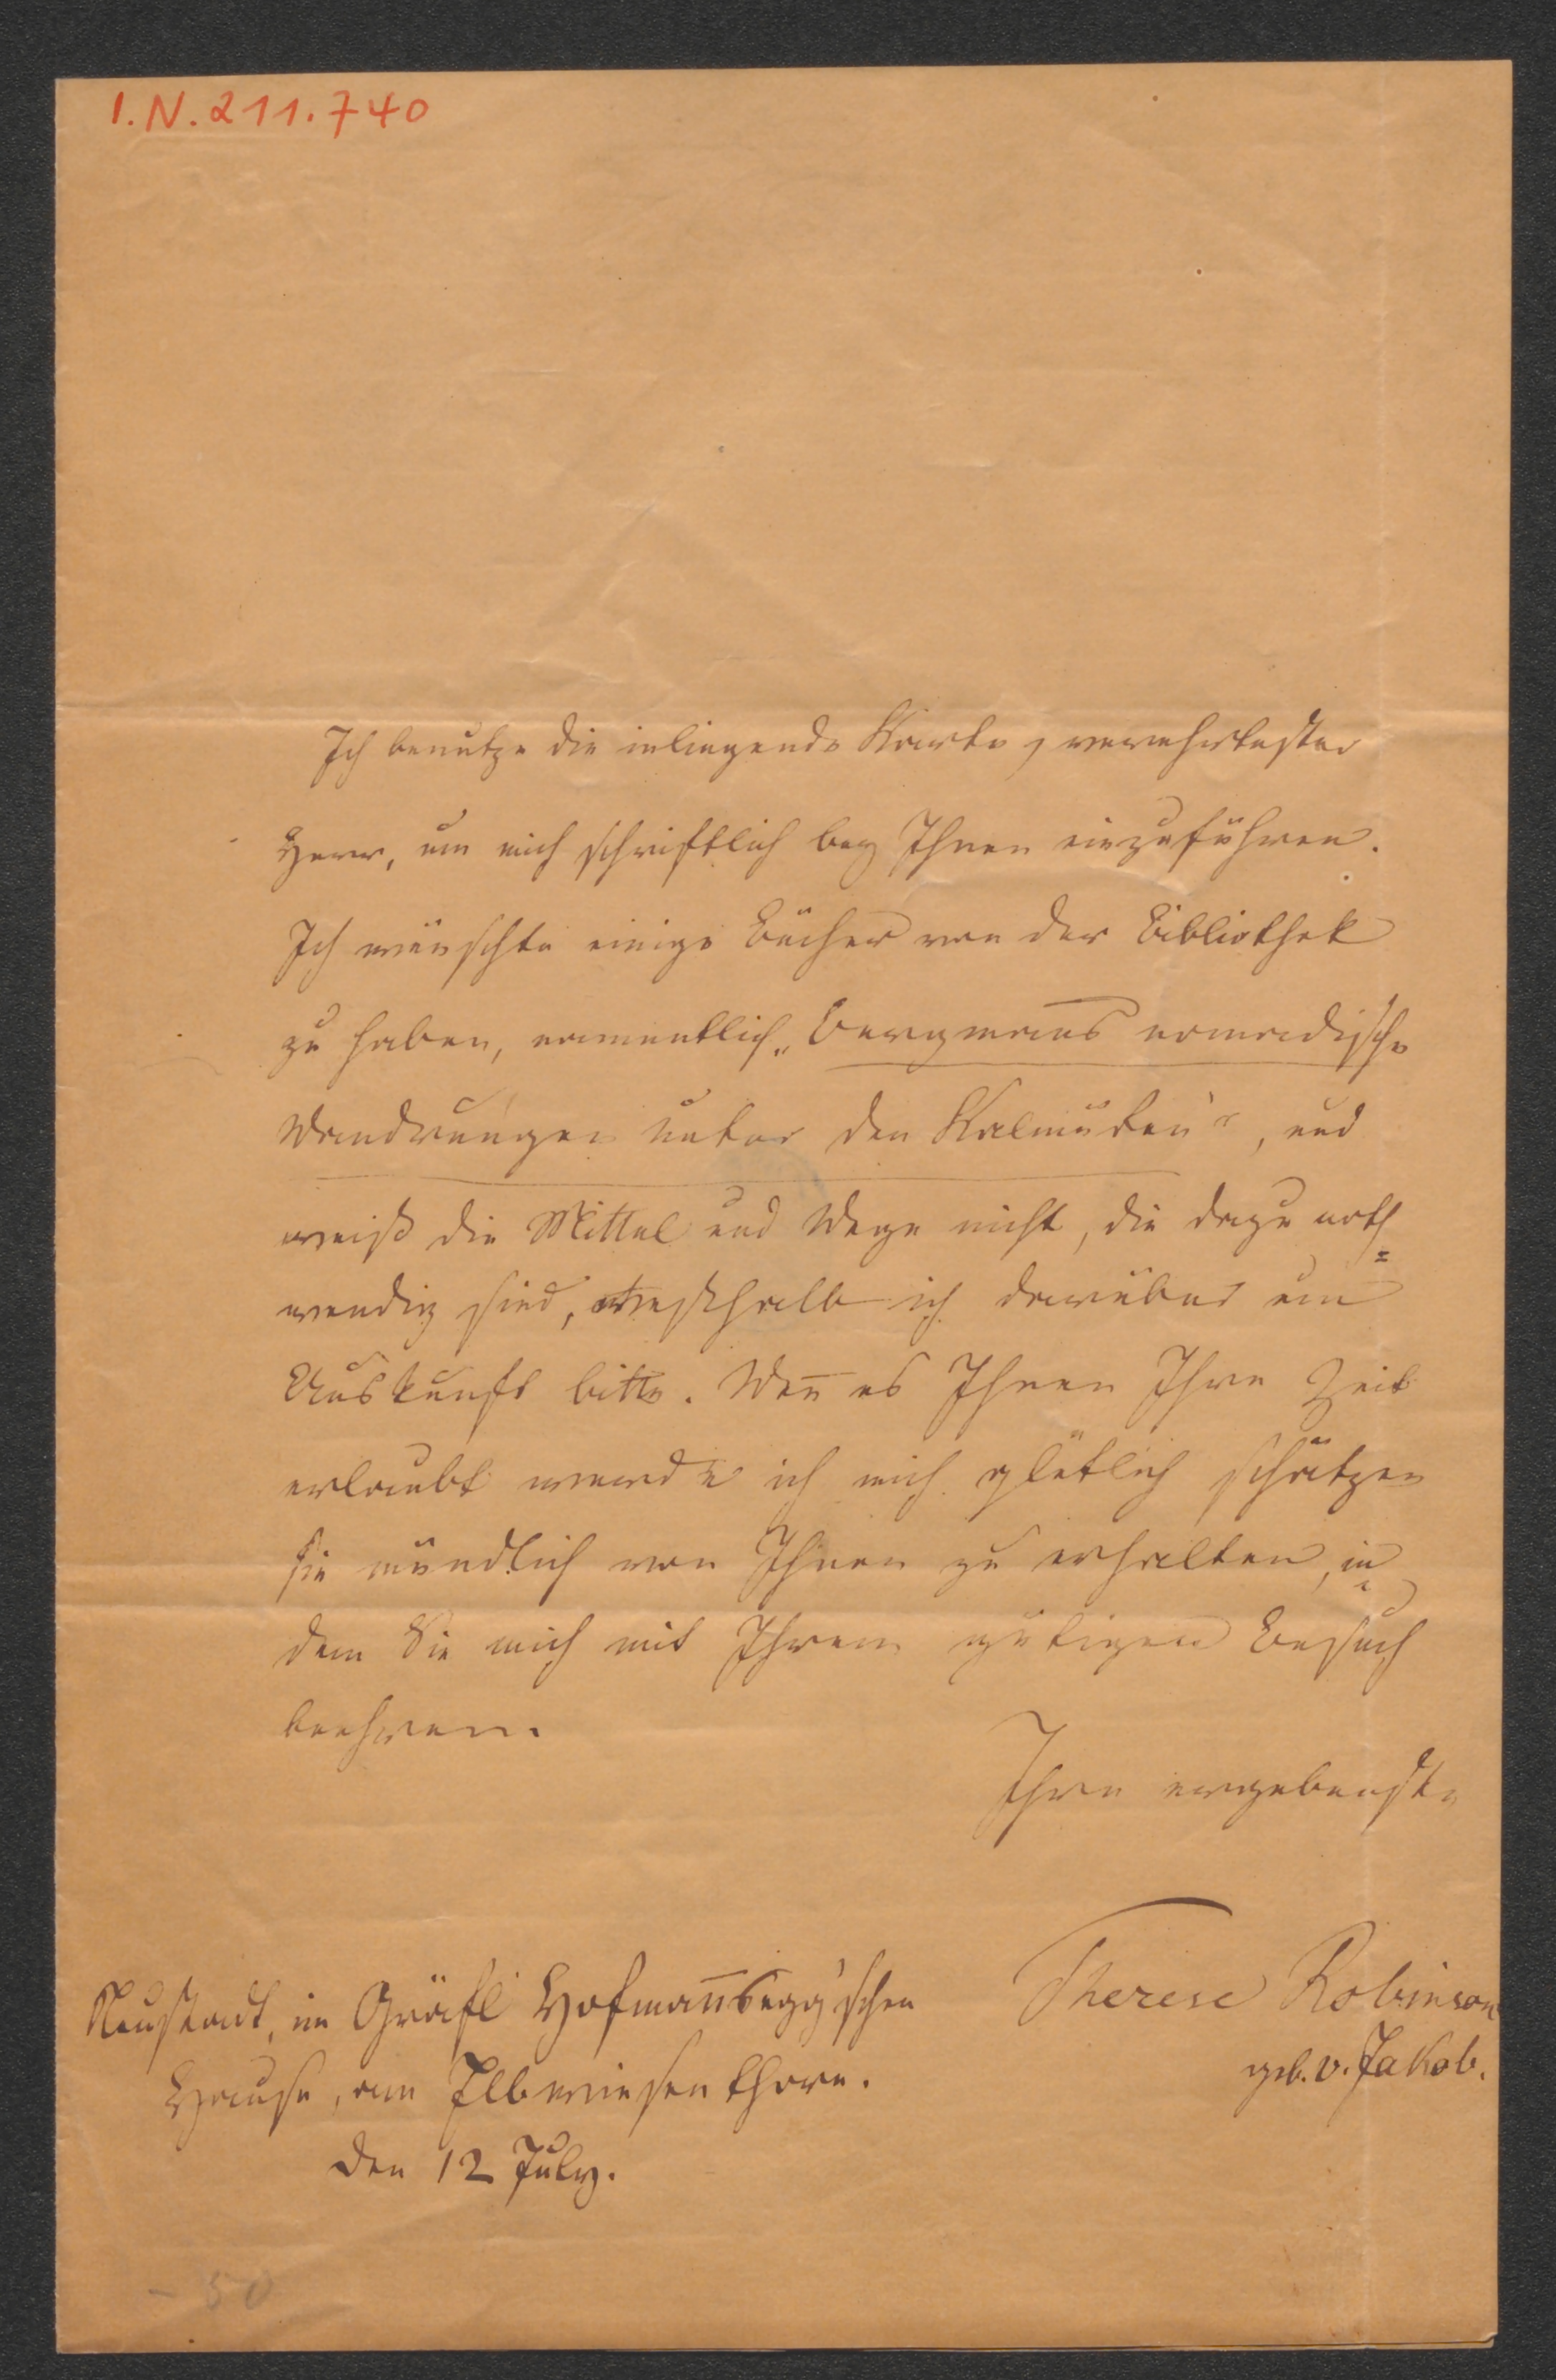 I.N. 211.740
Ich benutze die inliegende Karte, verehrtester
Herr, um mich schriftlich bey Ihnen einzuführen.
Ich wünschte einige Bücher von der Bibliothek
zu haben, namentlich „Bergmans nomadische
Wandrungen unter den Kalmüken“, und
weiß die Mittel und Wege nicht, die dazu noth=
wendig sind, weßhalb ich darüber um
Auskunft bitte. Wen̄ es Ihnen Ihre Zeit
erlaubt werde ich mich glüklich schätzen
sie mündlich von Ihnen zu erhalten, in=
dem Sie mich mit Ihrem gütigen Besuch
beehren.
Ihre ergebenste
Therese Robinson
geb. v. Jakob.
Neustadt, im Gräfl Hofman̄segg'schen
Hause, am Elbwiesenthore.
den 12 July.
- 50